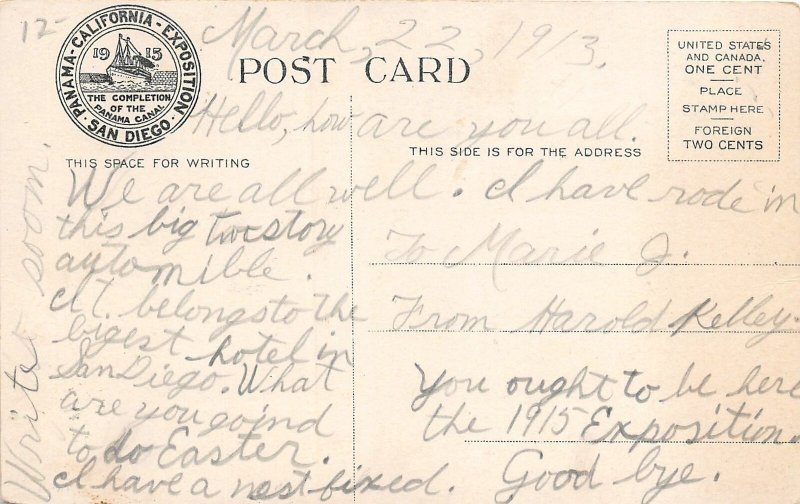 12-
PANAMA-CALIFORNIA-EXPOSITION
1915
THE COMPLETION
OF THE
PANAMA CANAL
SAN DIEGO
March, 22, 1913.
POST CARD
UNITED STATES
AND CANADA,
ONE CENT
PLACE
STAMP HERE
FOREIGN
TWO CENTS
Hello, how are you all.
THIS SPACE FOR WRITING
THIS SIDE IS FOR THE ADDRESS
We are all well. I have rode in
this big two story
automible.
It. belongs to the
bigest hotel in
San Diego. What
are you goind
to do Easter.
I have a nest fixed.
Write soom.
To Marie J.
From Harold Kelley.
You ought to be here
the 1915 Exposition.
Good bye.